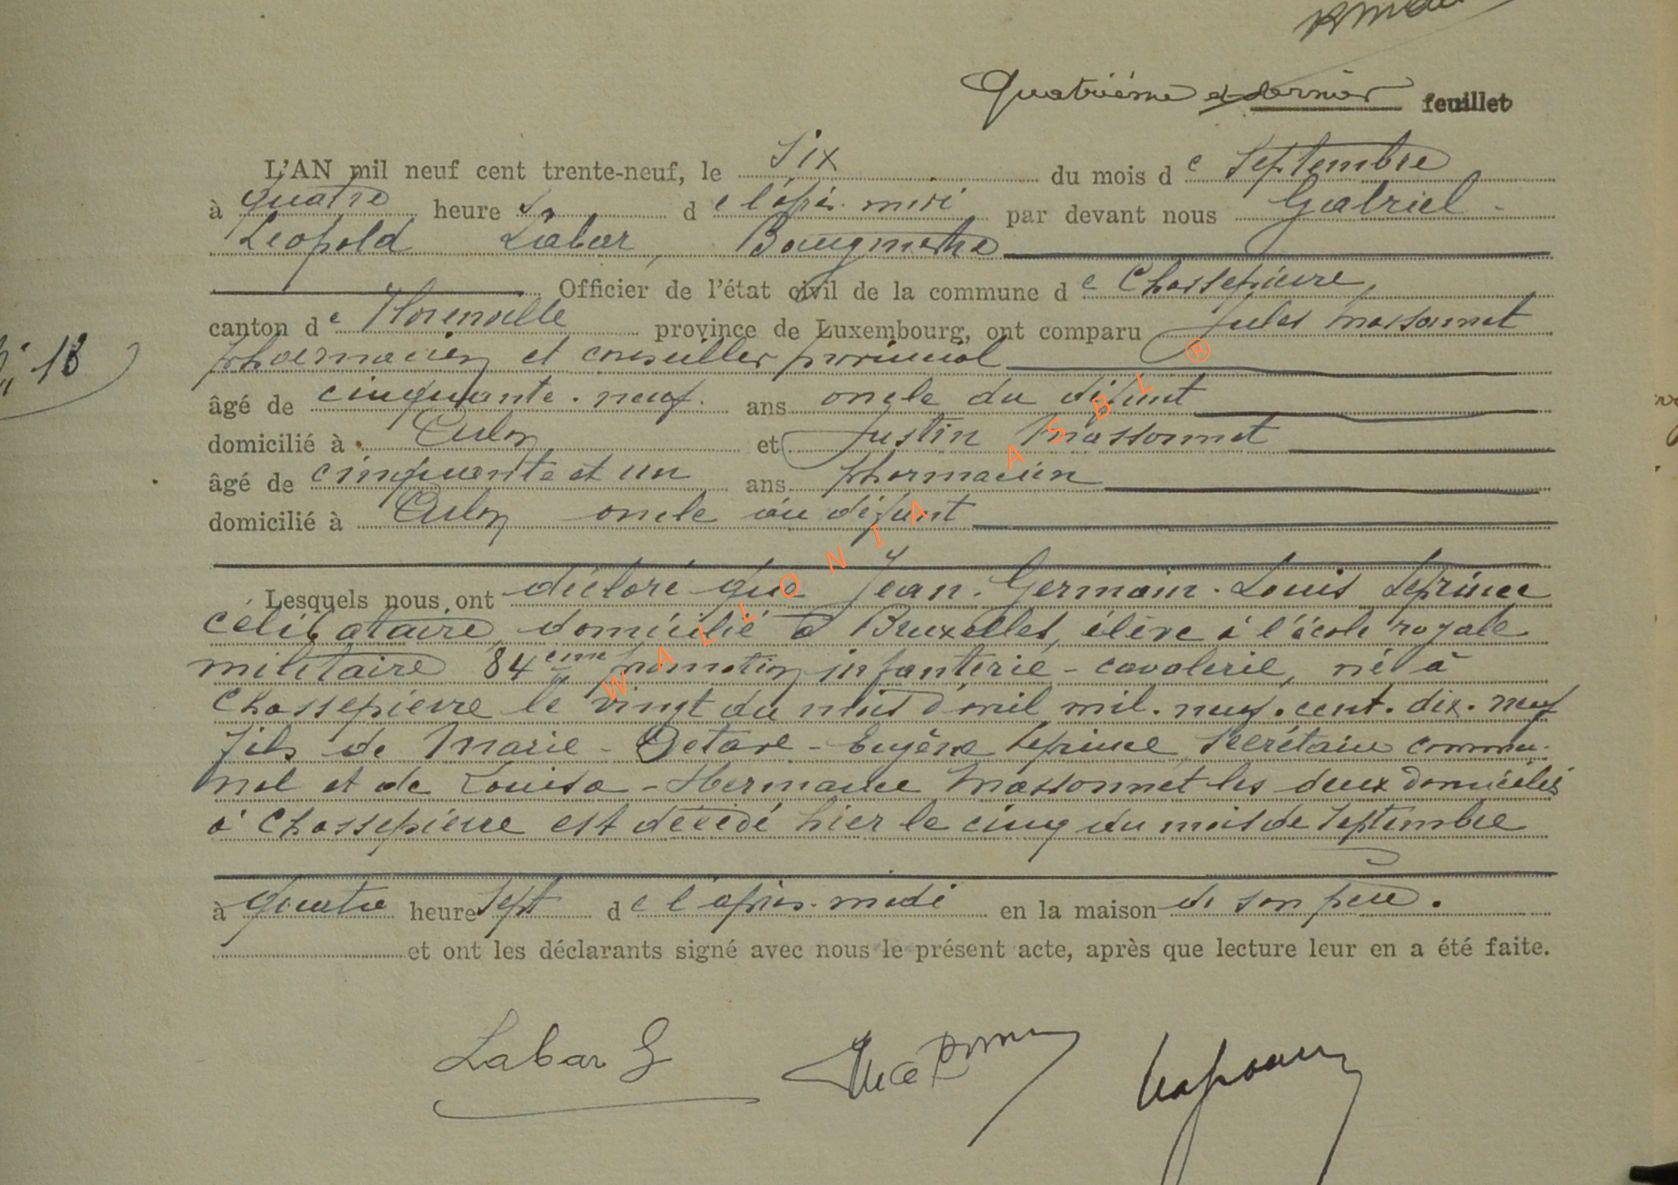 Quatrième et dernier feuillet
L'AN mil neuf cent trente-neuf, le six du mois de Septembre
à quatre heures de l'après-midi par devant nous Gabriel-
Léopold Labar, Bourgmestre
Officier de l'état civil de la commune de Chassepierre,
canton de Florenville province de Luxembourg, ont comparu Jules Massonnet
N° 18
pharmacien et conseiller provincial
âgé de cinquante-neuf ans oncle du défunt
domicilié à Arlon et Justin Massonnet
âgé de cinquante et un ans pharmacien
domicilié à Arlon oncle du défunt
Lesquels nous ont déclaré que Jean-Germain-Louis Leprince
célibataire, domicilié à Bruxelles, élève à l'école royale
militaire 84ème promotion infanterie-cavalerie, né à
Chassepierre le vingt du mois d'avril mil-neuf-cent-dix-neuf
fils de Marie-Octave-Eugène Leprince, Secrétaire commu-
nal et de Louisa-Hermance Massonnet les deux domiciliés
à Chassepierre est décédé hier le cinq du mois de Septembre
à quatre heure sept de l'après-midi en la maison de son père.
et ont les déclarants signé avec nous le présent acte, après que lecture leur en a été faite.
Labar G
WALLONIA ASBL ®